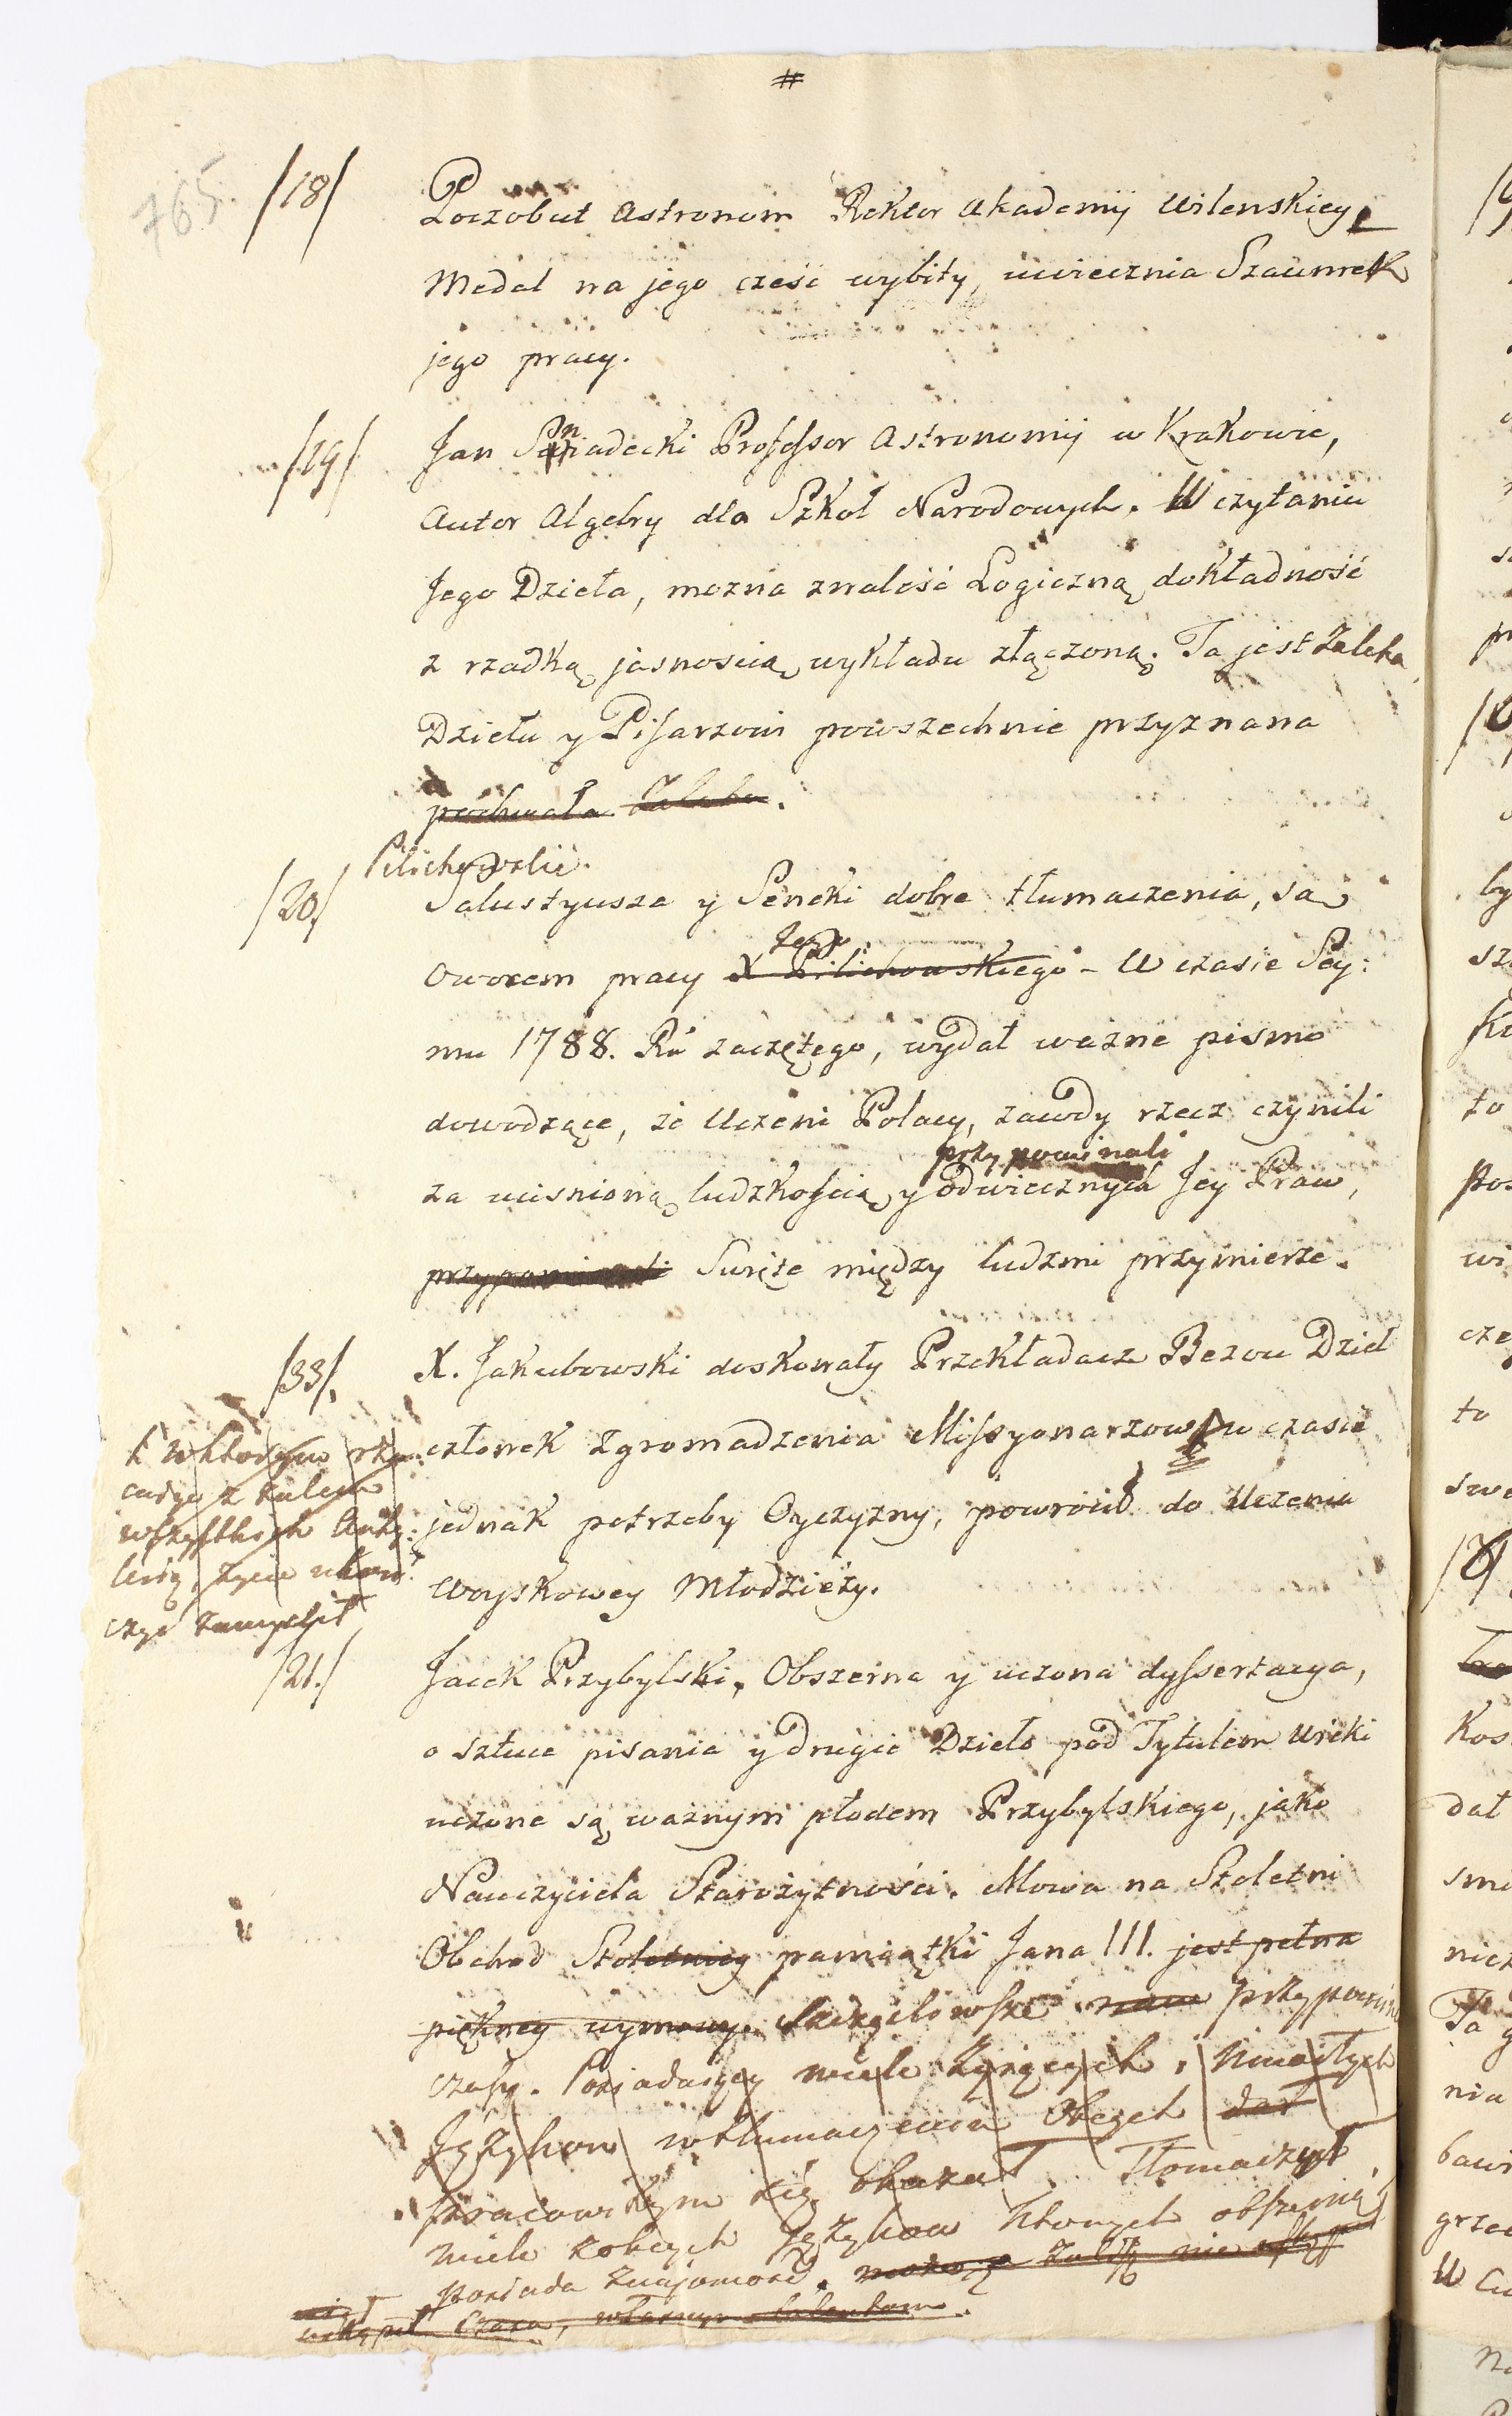 #
765.
/18/
Poczobut Astronom Rektor Akademij Wilenskiey
Medal na jego cześć wybity, uwiecznia Szacunek
jego pracy.
/19/
Jan Sniadecki Professor Astronomij w Krakowie,
Autor Algebry dla Szkoł Narodowych. W czytaniu
Jego Dzieła, mozna znaleść Logiczną dokładność
z rzadką jasnoscią wykładu złączoną. Ta jest Zaleta
Dziełu y Pisarzowi powszechnie przyznana
pochwała Zaleta.
/20/
Pilichowski.
Salustyusza y Seneki dobre tłumaczenia, są
Jego
owocem pracy X Pilichowskiego - W czasie Sey:
mu 1788. Ru zaczętego, wydał wazne pismo
dowodzące, że Uczeni Polacy, zawdy rzecz czynili
przypominali
za ucisnioną ludzkoscią y odwiecznych Jey Praw,
przypominali Swięte między ludzmi przymierze.
/33/.
X. Jakubowski doskonały Przekładacz Bezou Dzieł
członek Zgromadzenia Missyonarzow w czasie
jednak potrzeby Oyczyzny, powrócił do Uczenia
Woyskowey Młodzieży.
z żalem
wszystkich
życie
czyć zamyślił
/21./
Jacek Przybylski. Obszerna y uczona dyssertacya,
o sztuce pisania y drugie Dzieło pod Tytułem Wieki
uczone są waznym płodem Przybylskiego, jako
Nauczyciela Starożytności. Mowa na Stoletni
Obchod Stoletniey pamiątki Jana III. jest pełna
piękney wymowy. nam przypomina
czasy. Posiadaiący wiele żyiących i umarłych
Językow w tłumaczeniu Obcych dał
pracowitym się okazał. Tłomaczył
wiele z obcych Językow ktorych obszerną
posiada znajomość.
czasu, własnym talentom.